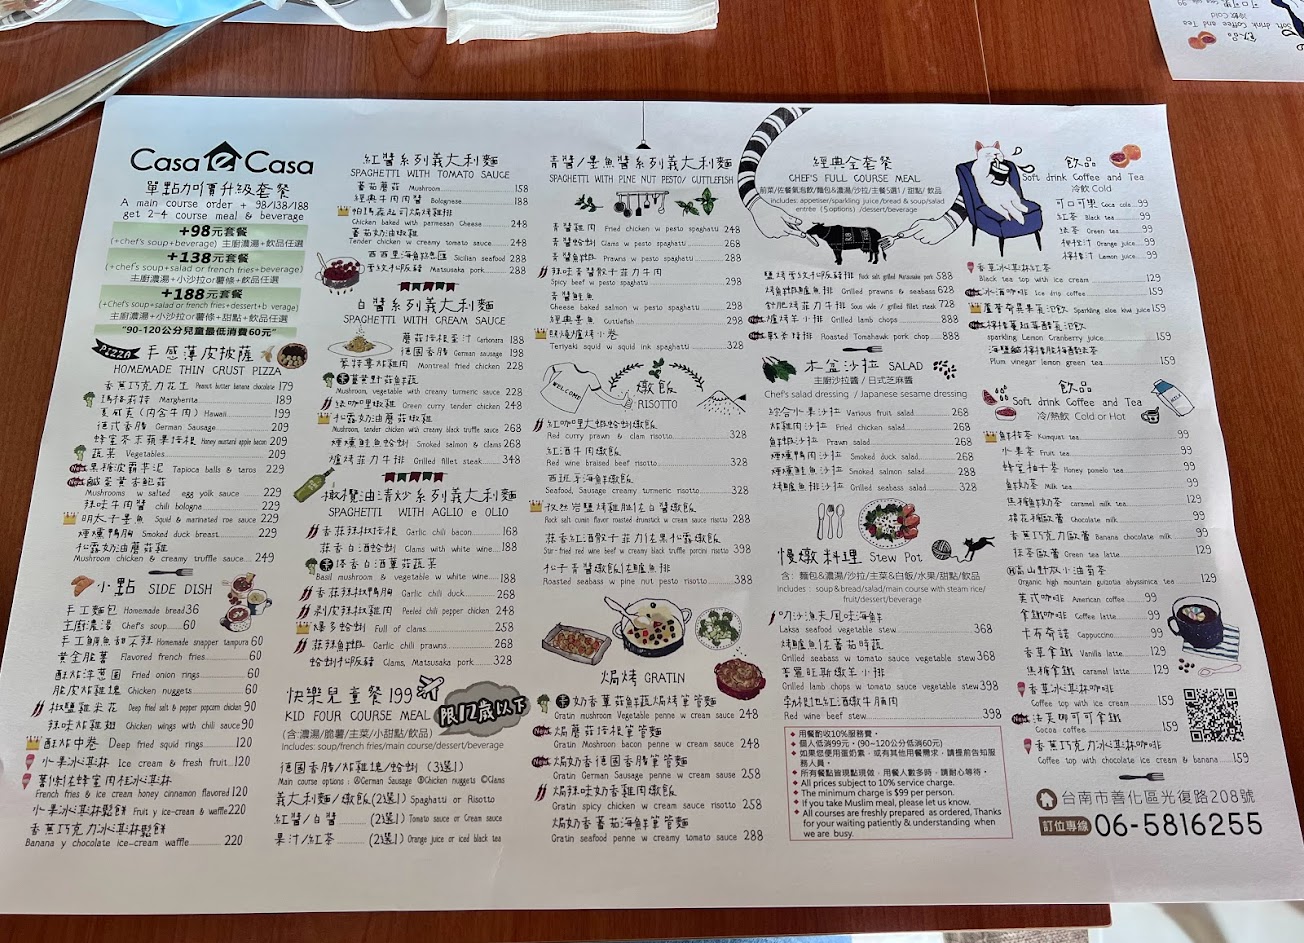 Casa e Casa
單點加價升級套餐
A main course order + 98/138/188
get 2-4 course meal & beverage
+98元套餐
(+chef's soup+beverage) 主廚濃湯+飲品任選
+138元套餐
(+chef's soup+salad or french fries+beverage)
主廚濃湯+小沙拉or薯條+飲品任選
+188元套餐
主廚濃湯+小沙拉or薯條+甜點+飲品任選
"90-120公分兒童最低消費60元"
PIZZA 手感薄皮披薩
HOMEMADE THIN CRUST PIZZA
香蕉巧克力花生 Peanut butter banana chocolate 179
瑪格莉特 Margherita 189
夏威夷(內含牛肉) Hawaii 199
德式香腸 German Sausage 209
蜂蜜芥末蘋果培根 Honey mustard apple bacon 209
蔬菜 Vegetables 209
New 黑糖波霸芋泥 Tapioca balls & taros 229
New 鹹蛋黃杏鮑菇
Mushrooms w salted egg yolk sauce 229
辣味牛肉醬 chili bologna 229
明太子墨魚 Squid & marinated roe sauce 229
煙燻鴨胸 Smoked duck breast 229
松露奶油蘑菇雞
Mushroom chicken & creamy truffle sauce 249
小點 SIDE DISH
手工麵包 Homemade bread 36
主廚濃湯 Chef's soup 60
手工鯛魚甜不辣 Homemade snapper tampura 60
黃金脆薯 Flavored french fries 60
酥炸洋蔥圈 Fried onion rings 60
脆皮炸雞塊 Chicken nuggets 60
椒鹽雞米花 Deep fried salt & pepper popcorn chicken 90
辣味炸雞翅 Chicken wings with chili sauce 90
酥炸中卷 Deep fried squid rings 120
水果冰淇淋 Ice cream & fresh fruit 120
薯條佐蜂蜜肉桂冰淇淋
French fries & ice cream honey cinnamon flavored 120
水果冰淇淋鬆餅 Fruit y ice-cream & waffle 220
香蕉巧克力冰淇淋鬆餅
Banana y chocolate ice-cream waffle 220
紅醬系列義大利麵
SPAGHETTI WITH TOMATO SAUCE
蕃茄蘑菇 Mushroom 158
經典牛肉肉醬 Bolognese 188
帕瑪森起司焗烤雞排
Chicken baked with parmesan Cheese 248
蕃茄奶油嫩雞
Tender chicken w creamy tomato sauce 248
西西里海鮮總匯 Sicilian seafood 288
雪紋松阪豬 Matsusaka pork 288
白醬系列義大利麵
SPAGHETTI WITH CREAM SAUCE
蘑菇培根蛋汁 Carbonara 188
德國香腸 German sausage 198
蒙特婁炸雞肉 Montreal fried chicken 228
薑黃野菇鮮蔬
Mushroom, vegetable with creamy turmeric sauce 228
綠咖哩嫩雞 Green curry tender chicken 248
松露奶油蘑菇嫩雞
Mushroom, tender chicken with creamy black truffle sauce 268
煙燻鮭魚蛤蜊 Smoked salmon & clams 268
爐烤菲力牛排 Grilled fillet steak 348
橄欖油清炒系列義大利麵
SPAGHETTI WITH AGLIO e OLIO
香蒜辣椒培根 Garlic chili bacon 168
蒜香白酒蛤蜊 Clams with white wine 188
塔香白酒蕈菇蔬菜
Basil mushroom & vegetable w white wine 188
香蒜辣椒鴨胸 Garlic chili duck 268
剝皮辣椒雞肉 Peeled chili pepper chicken 248
爆多蛤蜊 Full of clams 258
蒜辣鮮蝦 Garlic chili prawns 268
蛤蜊松阪豬 Clams, Matsusaka pork 328
快樂兒童餐 199
KID FOUR COURSE MEAL
限12歲以下
(含:濃湯/脆薯/主菜/小甜點/飲品)
includes: soup/french fries/main course/dessert/beverage
德國香腸/炸雞塊/蛤蜊 (3選1)
Main course options : ①German Sausage ②Chicken nuggets ③Clams
義大利麵/燉飯(2選1) Spaghatti or Risotto
紅醬/白醬 (2選1) Tomato sauce or Cream sauce
果汁/紅茶 (2選1) Orange juice or iced black tea
青醬/墨魚醬系列義大利麵
SPAGHETTI WITH PINE NUT PESTO/ CUTTLEFISH
青醬雞肉 Fried chicken w pesto spaghatti 248
青醬蛤蜊 Clams w pesto spaghatti 268
青醬鮮蝦 Prawns w pesto spaghatti 288
辣味青醬骰子菲力牛肉
Spicy beef w pesto spaghatti 298
青醬鮭魚
Cheese baked salmon w pesto spaghatti 298
經典墨魚 Cuttlefish 298
照燒爐烤小卷
Teriyaki squid w squid ink spaghatti 328
WELCOME
燉飯
RISOTTO
紅咖哩大蝦蛤蜊燉飯
Red curry prawn & clam risotto 328
紅酒牛肉燉飯
Red wine braised beef risotto 328
西班牙海鮮燉飯
Seafood, Sausage creamy turmeric risotto 328
孜然岩鹽烤雞腿佐白醬燉飯
Rock salt cumin flavor roasted drumstick w cream sauce risotto 288
蒜香紅酒骰子菲力佐黑松露燉飯
Stir-fried red wine beef w creamy black truffle porcini risotto 398
松子青醬燉飯佐鱸魚排
Roasted seabass w pine nut pesto risotto 388
焗烤 GRATIN
奶香蕈菇鮮蔬焗烤筆管麵
Gratin mushroom Vegetable penne w cream sauce 248
New 焗蘑菇培根筆管麵
Gratin Moshroom bacon penne w cream sauce 248
New 焗奶香德國香腸筆管麵
Gratin German Sausage penne w cream sauce 258
焗辣味奶香雞肉燉飯
Gratin spicy chicken w cream sauce risotto 258
焗奶香蕃茄海鮮筆管麵
Gratin seafood penne w creamy tomato sauce 288
經典全套餐
CHEF'S FULL COURSE MEAL
前菜/佐餐氣泡飲/麵包&濃湯/沙拉/主餐5選1/甜點/飲品
includes: appetiser/sparkling juice/bread & soup/salad
entrée (5options) /dessert/beverage
鹽烤雪紋松阪豬排 Rock salt grilled Matsusaka pork 588
烤鮮蝦鱸魚排 Grilled prawns & seabass 628
舒肥烤菲力牛排 Sous vide / grilled fillet steak 728
New 爐烤羊小排 Grilled lamb chops 888
New 戰斧豬排 Roasted Tomahawk pork chop 888
木盆沙拉 SALAD
主廚沙拉醬 / 日式芝麻醬
Chef's salad dressing / Japanese sesame dressing
綜合水果沙拉 Various fruit salad 268
炸雞肉沙拉 Fried chicken salad 268
鮮蝦沙拉 Prawn salad 268
煙燻鴨肉沙拉 Smoked duck salad 268
煙燻鮭魚沙拉 Smoked salmon salad 288
烤鱸魚排沙拉 Grilled seabass salad 328
慢燉料理 Stew Pot
含: 麵包&濃湯/沙拉/主菜&白飯/水果/甜點/飲品
includes : soup&bread/salad/main course with steam rice/
fruit/dessert/beverage
叻沙漁夫風味海鮮
Laksa seafood vegetable stew 368
烤鱸魚佐蕃茄時蔬
Grilled seabass w tomato sauce vegetable stew 368
Grilled lamb chops w tomato sauce vegetable stew 398
紅酒燉牛腩肉
Red wine beef stew 398
用餐酌收10%服務費。
個人低消99元。(90-120公分低消60元)
如果您使用蛋奶素,或有其他用餐需求,請提前告知服務人員。
所有餐點皆現點現做,用餐人數多時,請耐心等待。
All prices subject to 10% service charge.
The minimum charge is $99 per person.
If you take Muslim meal, please let us know.
All courses are freshly prepared as ordered, Thanks
for your waiting patiently & understanding when
we are busy.
飲品
Soft drink Coffee and Tea
冷飲 Cold
可口可樂 Coca cola 99
紅茶 Black tea 99
綠茶 Green tea 99
柳橙汁 Orange juice 99
檸檬汁 Lemon juice 99
香草冰淇淋紅茶
Black tea top with ice cream 129
New 冰滴咖啡 Ice drip coffee 159
蘆薈奇異果氣泡飲 Sparkling aloe kiwi juice 159
New 檸檬蔓越莓醋氣泡飲
sparkling Lemon Cranberry juice 159
海鹽鹹檸檬梅醋綠茶
Plum vinegar lemon green tea 159
飲品
Soft drink Coffee and Tea
冷/熱飲 Cold or Hot
MILK
鮮桔茶 Kumquat tea 99
水果茶 Fruit tea 99
蜂蜜柚子茶 Honey pomelo tea 99
鮮奶茶 Milk tea 99
焦糖鮮奶茶 caramel milk tea 129
棉花糖歐蕾 Chocolate milk 99
香蕉巧克力歐蕾 Banana chocolate milk 99
抹茶歐蕾 Green tea latte 129
高山野放小油菊茶
Organic high mountain guizotia abyssinica tea 129
美式咖啡 American coffee 99
拿鐵咖啡 Coffee latte 99
卡布奇諾 Cappuccino 99
香草拿鐵 Vanilla latte 129
焦糖拿鐵 caramel latte 129
香草冰淇淋咖啡
Coffee top with ice cream 159
New 抹茶可可拿鐵
Cocoa coffee 159
香蕉巧克力冰淇淋咖啡
Coffee top with chocolate ice cream & banana 159
台南市善化區光復路208號
訂位專線 06-5816255